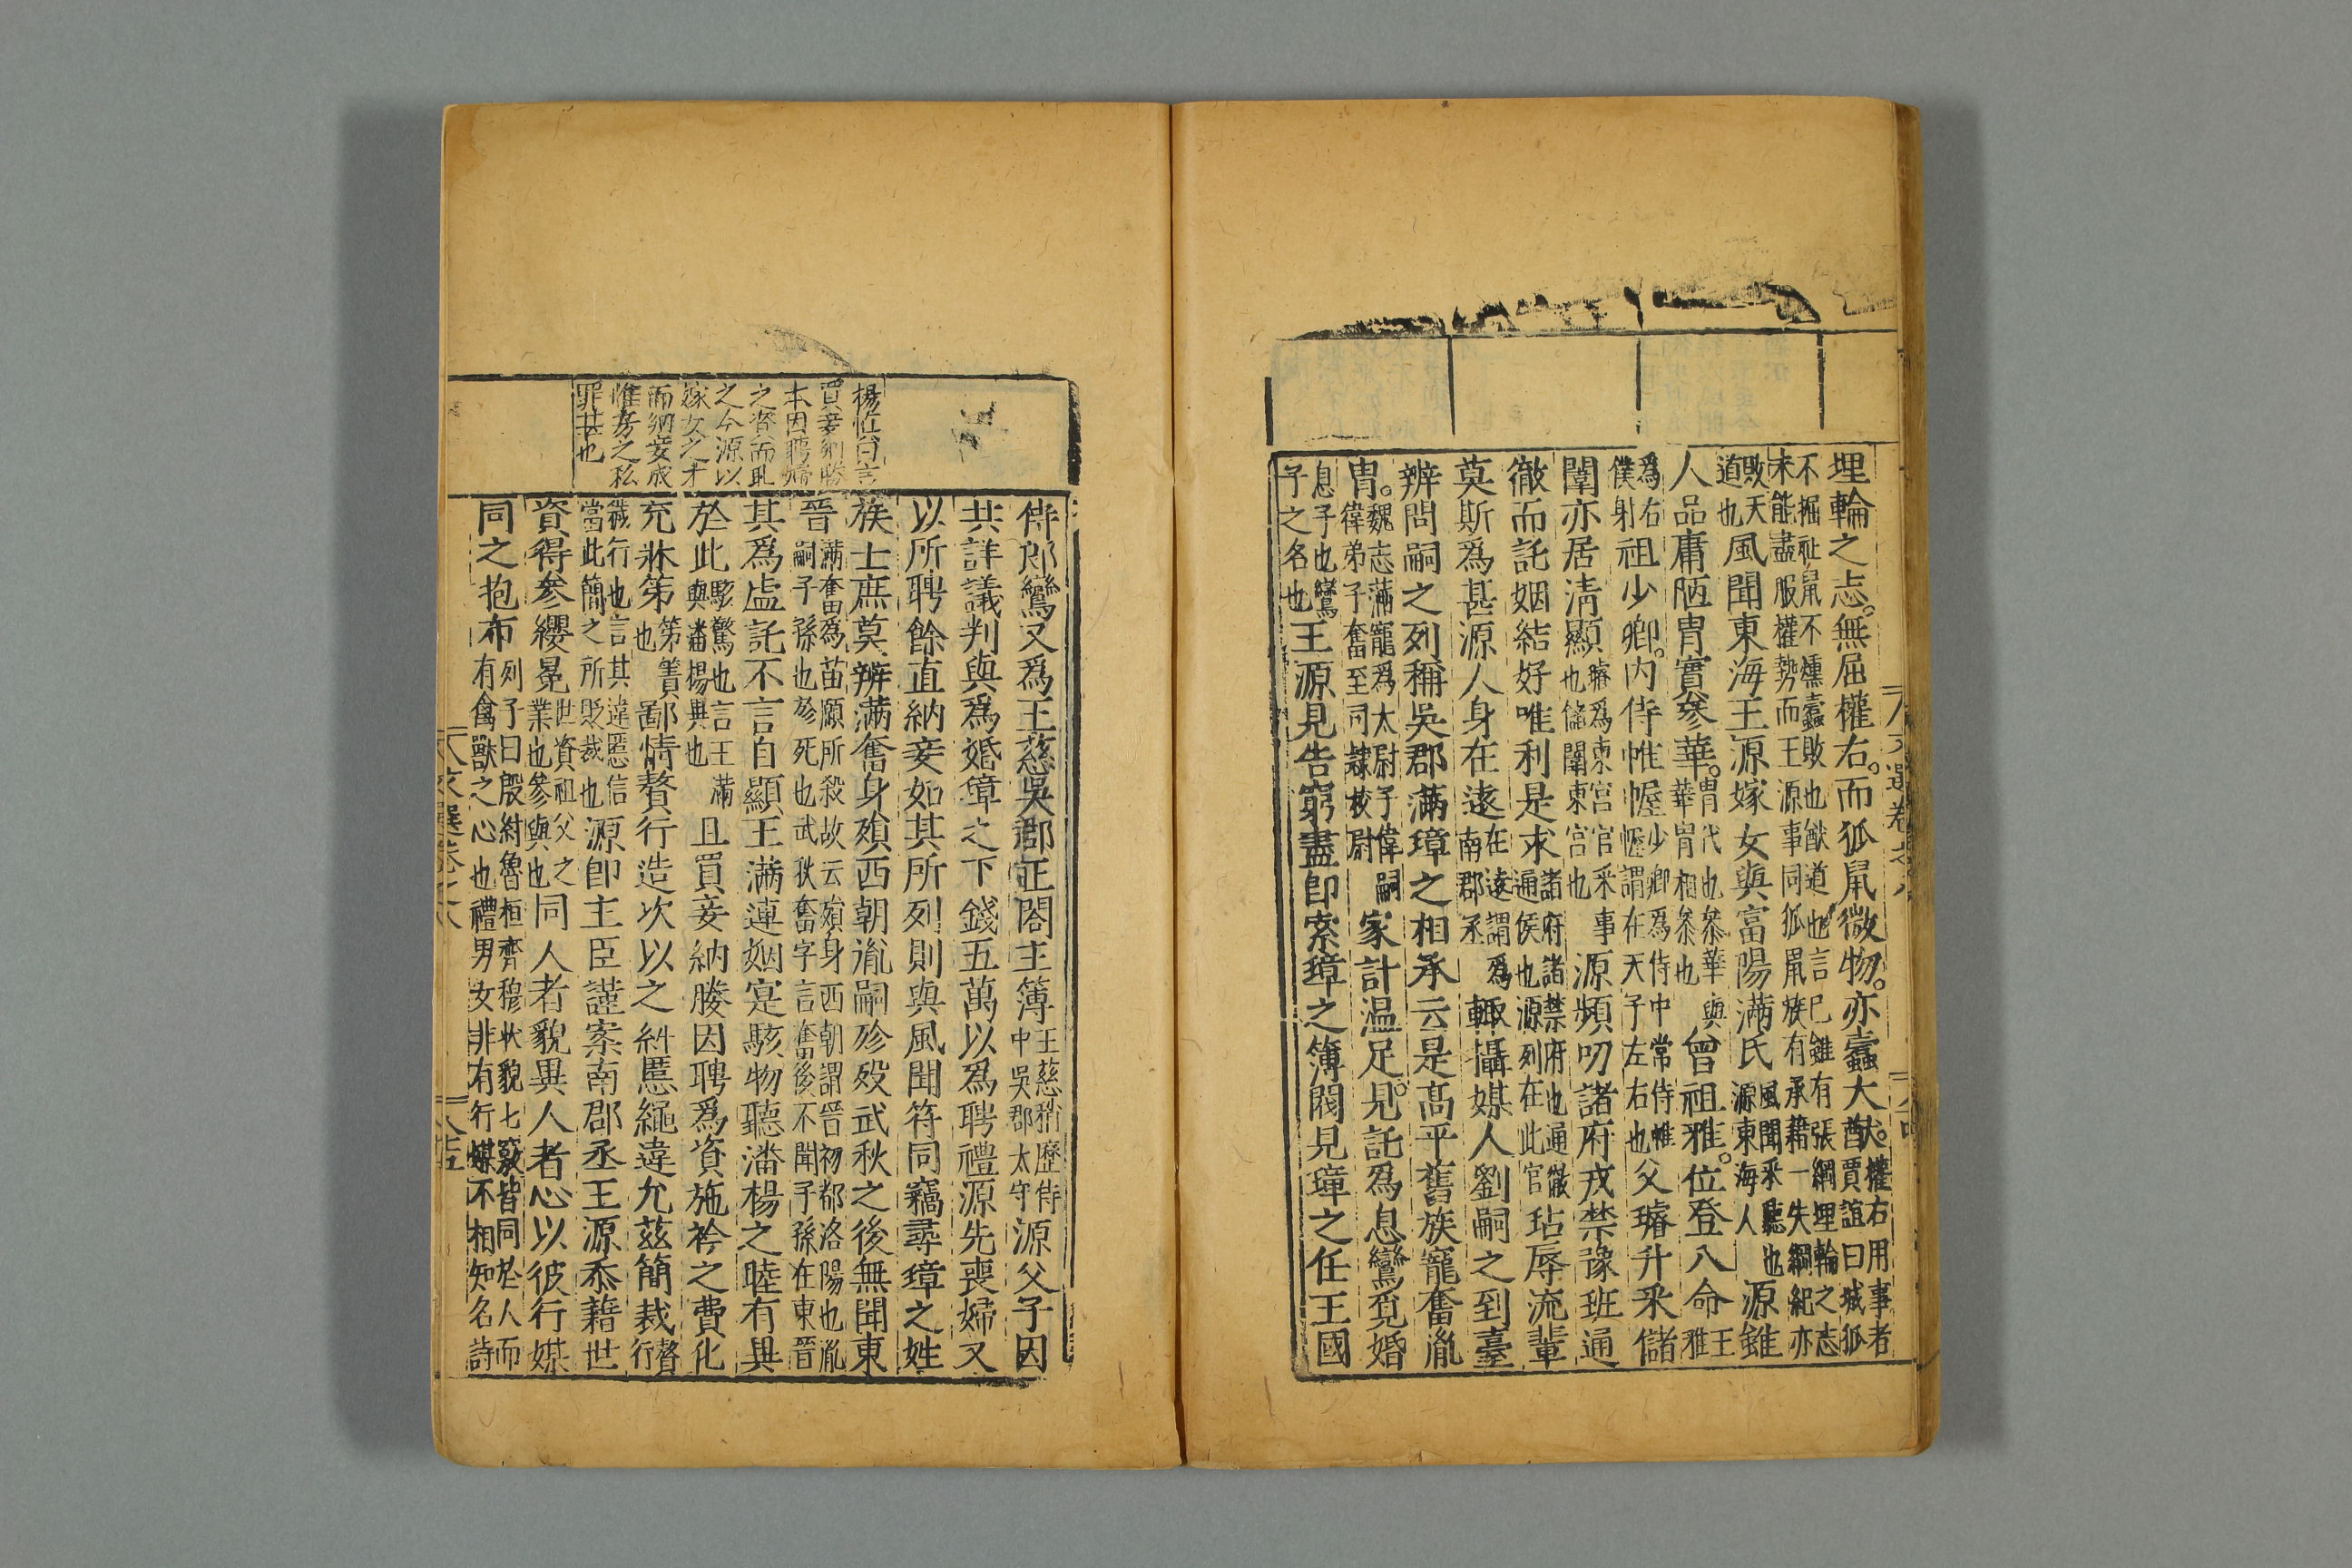 埋輪之志。無屈權右。而狐鼠微物。亦蠹大猷。權右用事者
賈誼曰城狐
不掘社鼠不燻蠹敗也猷道也言已雖有張綱埋輪之志
未能盡服權勢而王源事同狐鼠族有承藉一失綱紀亦
敗天
道也風聞東海王源嫁女與富陽滿氏風聞釆聽也
源東海人源雖
人品庸陋胄實參華。胄代也參華與
華胄相參也曾祖雅。位登八命王
雅
為右
僕射祖少卿。內侍帷幄少卿為侍中常侍帷
幄謂在天子左右也父璿升釆儲
闈亦居清顯璿為東宮官釆事
也儲闈東宮也源頻叨諸府戎禁豫班通
徹而託姻結好唯利是求諸府諸禁府也通徹
通侯也源列在此官玷辱流輩
莫斯為甚源人身在遠在遠謂為
南郡丞輙攝媒人劉嗣之到臺
辨問嗣之列稱吳郡滿璋之相承云是高平舊族寵奮胤
胄。魏志滿寵為太尉子偉嗣
偉弟子奮至司隸校尉家計温足。見託為息鸞覓婚
息子也鸞
子之名也王源見告窮盡即索璋之簿閥見璋之任王國
買妾納媵
本因聘婦
之資而耻
之今源以
嫁女之才
而納妾成
惟房之私
罪甚也
侍郎鸞又為王慈吳郡正閤主簿王慈稍歷侍
中吳郡太守源父子因
共詳議判與為婚璋之下錢五萬以為聘禮源先喪婦又
以所聘餘直納妾如其所列則與風聞符同竊尋璋之姓
族士庶莫辨滿奮身殞西朝胤嗣殄殁武秋之後無聞東
晉滿奮為苗願所殺故云殞身西朝謂晉初都洛陽也胤
嗣子孫也殄死也武秋奮字言奮後不聞子孫在東晉
其為虛託不言自顯王滿連姻寔駭物聽潘楊之睦有異
於此駭驚也言王滿
與潘楊異也且買妾納媵因聘為資施衿之費化
充牀第第簀
也鄙情贅行造次以之糾慝繩違允茲簡裁贅
行
穢行也言其違慝信
當此簡之所貶裁也源即主臣謹案南郡丞王源忝藉世
資得參纓冕世資祖父之
業也參與也同人者貌異人者心以彼行媒
同之抱布列子曰殷紂魯桓齊穆狀貌七竅皆同於人而
有禽獸之心也禮男女非有行媒不相知名詩